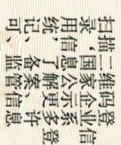 扫描二维码登
录‘国家企业信
用信息公示系
统’了解更多登
记、备案、许
可、监管信息